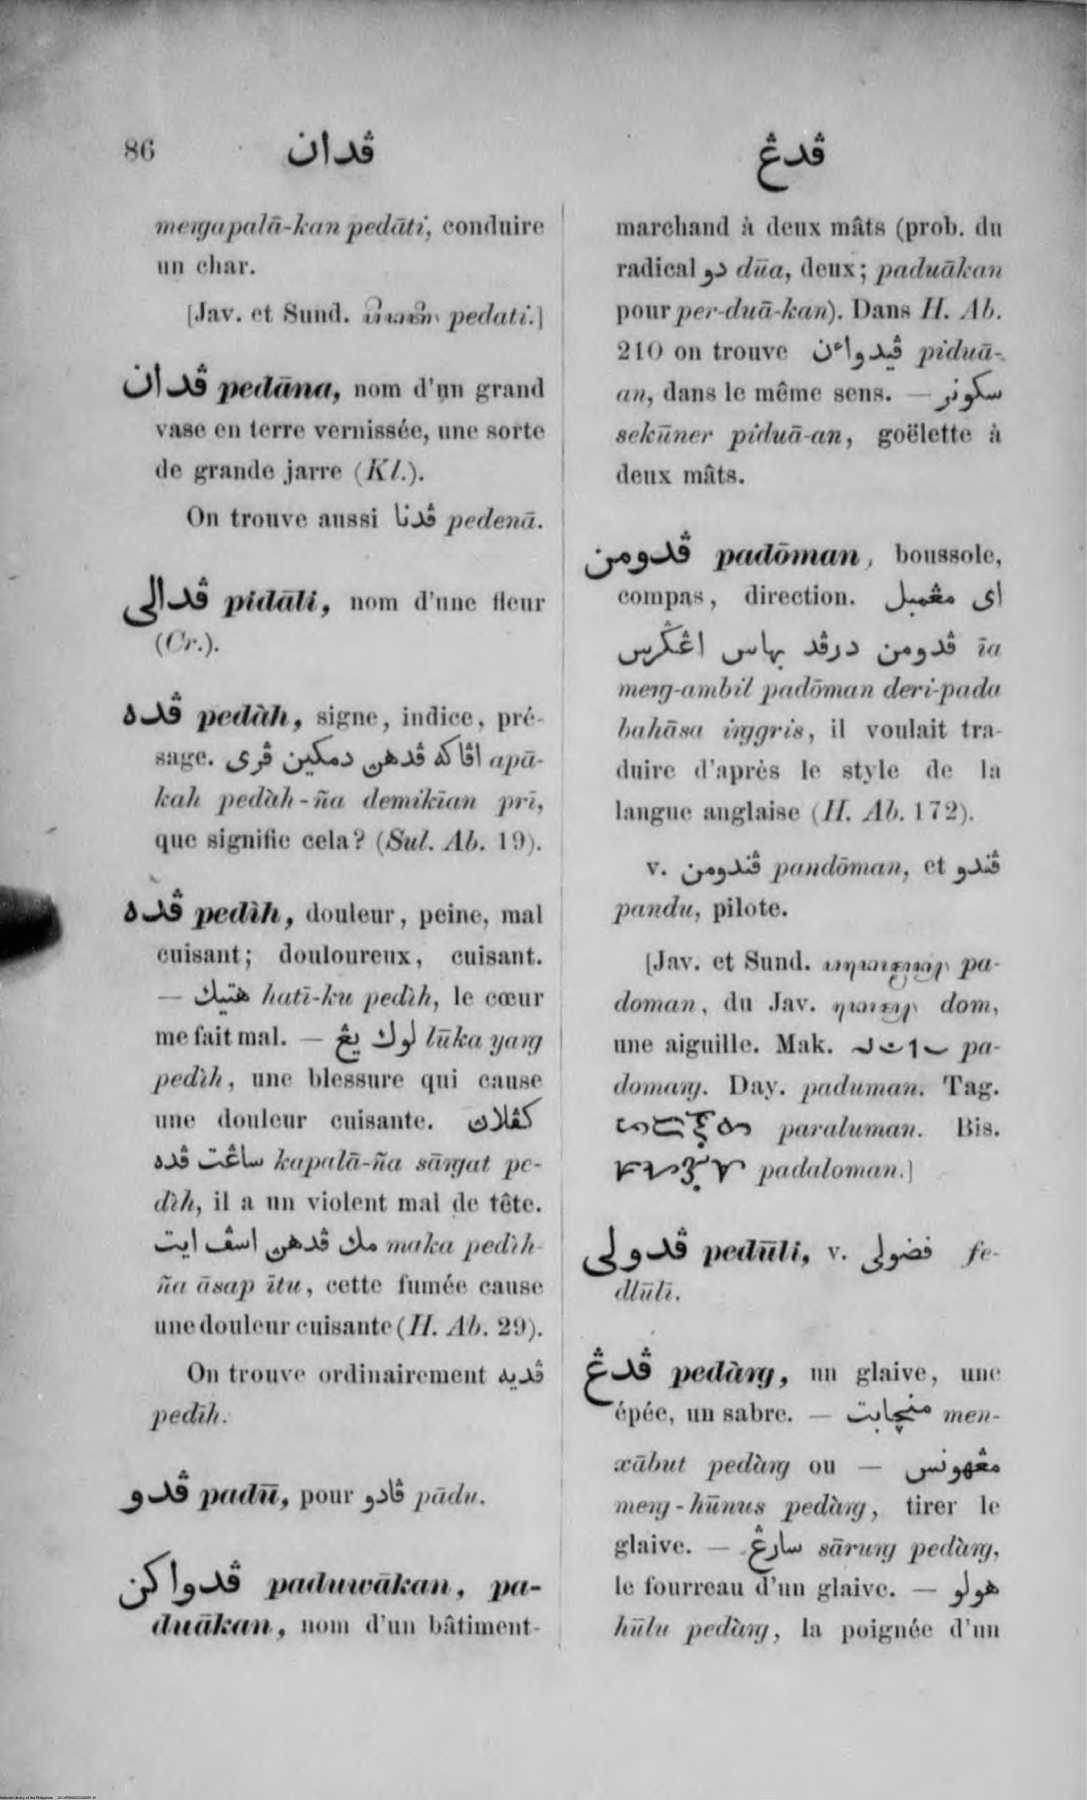 86 ڤدان ڤدڠ
meŋgapalā-kan pedāti, conduire
un char.
[Jav. et Sund. pedati.]
ڤدان pedāna, nom d'un grand
vase en terre vernissée, une sorte
de grande jarre (Kl.).
On trouve aussi ڤدنا pedenā.
ڤدالى pidāli, nom d'une fleur
(Cr.).
ڤده pedàh, signe, indice, pré-
sage. اڤاكه ڤدهن دمكين ڤرى apā-
kah pedàh-ña demikīan prī,
que signifie cela? (Sul. Ab. 19).
ڤده pedìh, douleur, peine, mal
cuisant; douloureux, cuisant.
— هتيك hatī-ku pedìh, le cœur
me fait mal. — لوك يڠ lūka yaŋg
pedìh, une blessure qui cause
une douleur cuisante. كڤلاڽ
ساڠت ڤده kapalā-ña sāŋgat pe-
dìh, il a un violent mal de tête.
مك ڤدهن اسڤ ايت maka pedìh-
ña āsap ītu, cette fumée cause
une douleur cuisante (H. Ab. 29).
On trouve ordinairement ڤديه
pedīh.
ڤدو padū, pour ڤادو pādu.
ڤدواكن paduwākan, pa-
duākan, nom d'un bâtiment-
marchand à deux mâts (prob. du
radical دو dūa, deux; paduākan
pour per-duā-kan). Dans H. Ab.
210 on trouve ڤيدواءن piduā-
an, dans le même sens. — سكونر
sekūner piduā-an, goëlette à
deux mâts.
ڤدومن padōman, boussole,
compas, direction. اى مڠمبل
ڤدومن درڤد بهاس اڠڬرس īa
meŋg-ambil padōman deri-pada
bahāsa iŋggris, il voulait tra-
duire d'après le style de la
langue anglaise (H. Ab. 172).
v. ڤندومن pandōman, et ڤندو
pandu, pilote.
[Jav. et Sund. pa-
doman, du Jav. dom,
une aiguille. Mak. pa-
domaŋg. Day. paduman. Tag.
paraluman. Bis.
padaloman.]
ڤدولى pedūli, v. فضولى fe-
dlūli.
ڤدڠ pedàŋg, un glaive, une
épée, un sabre. — منچابت men-
xābut pedàŋg ou — مڠهونس
meŋg-hūnus pedàŋg, tirer le
glaive. — سارڠ sāruŋg pedàŋg,
le fourreau d'un glaive. — هولو
hūlu pedàŋg, la poignée d'un